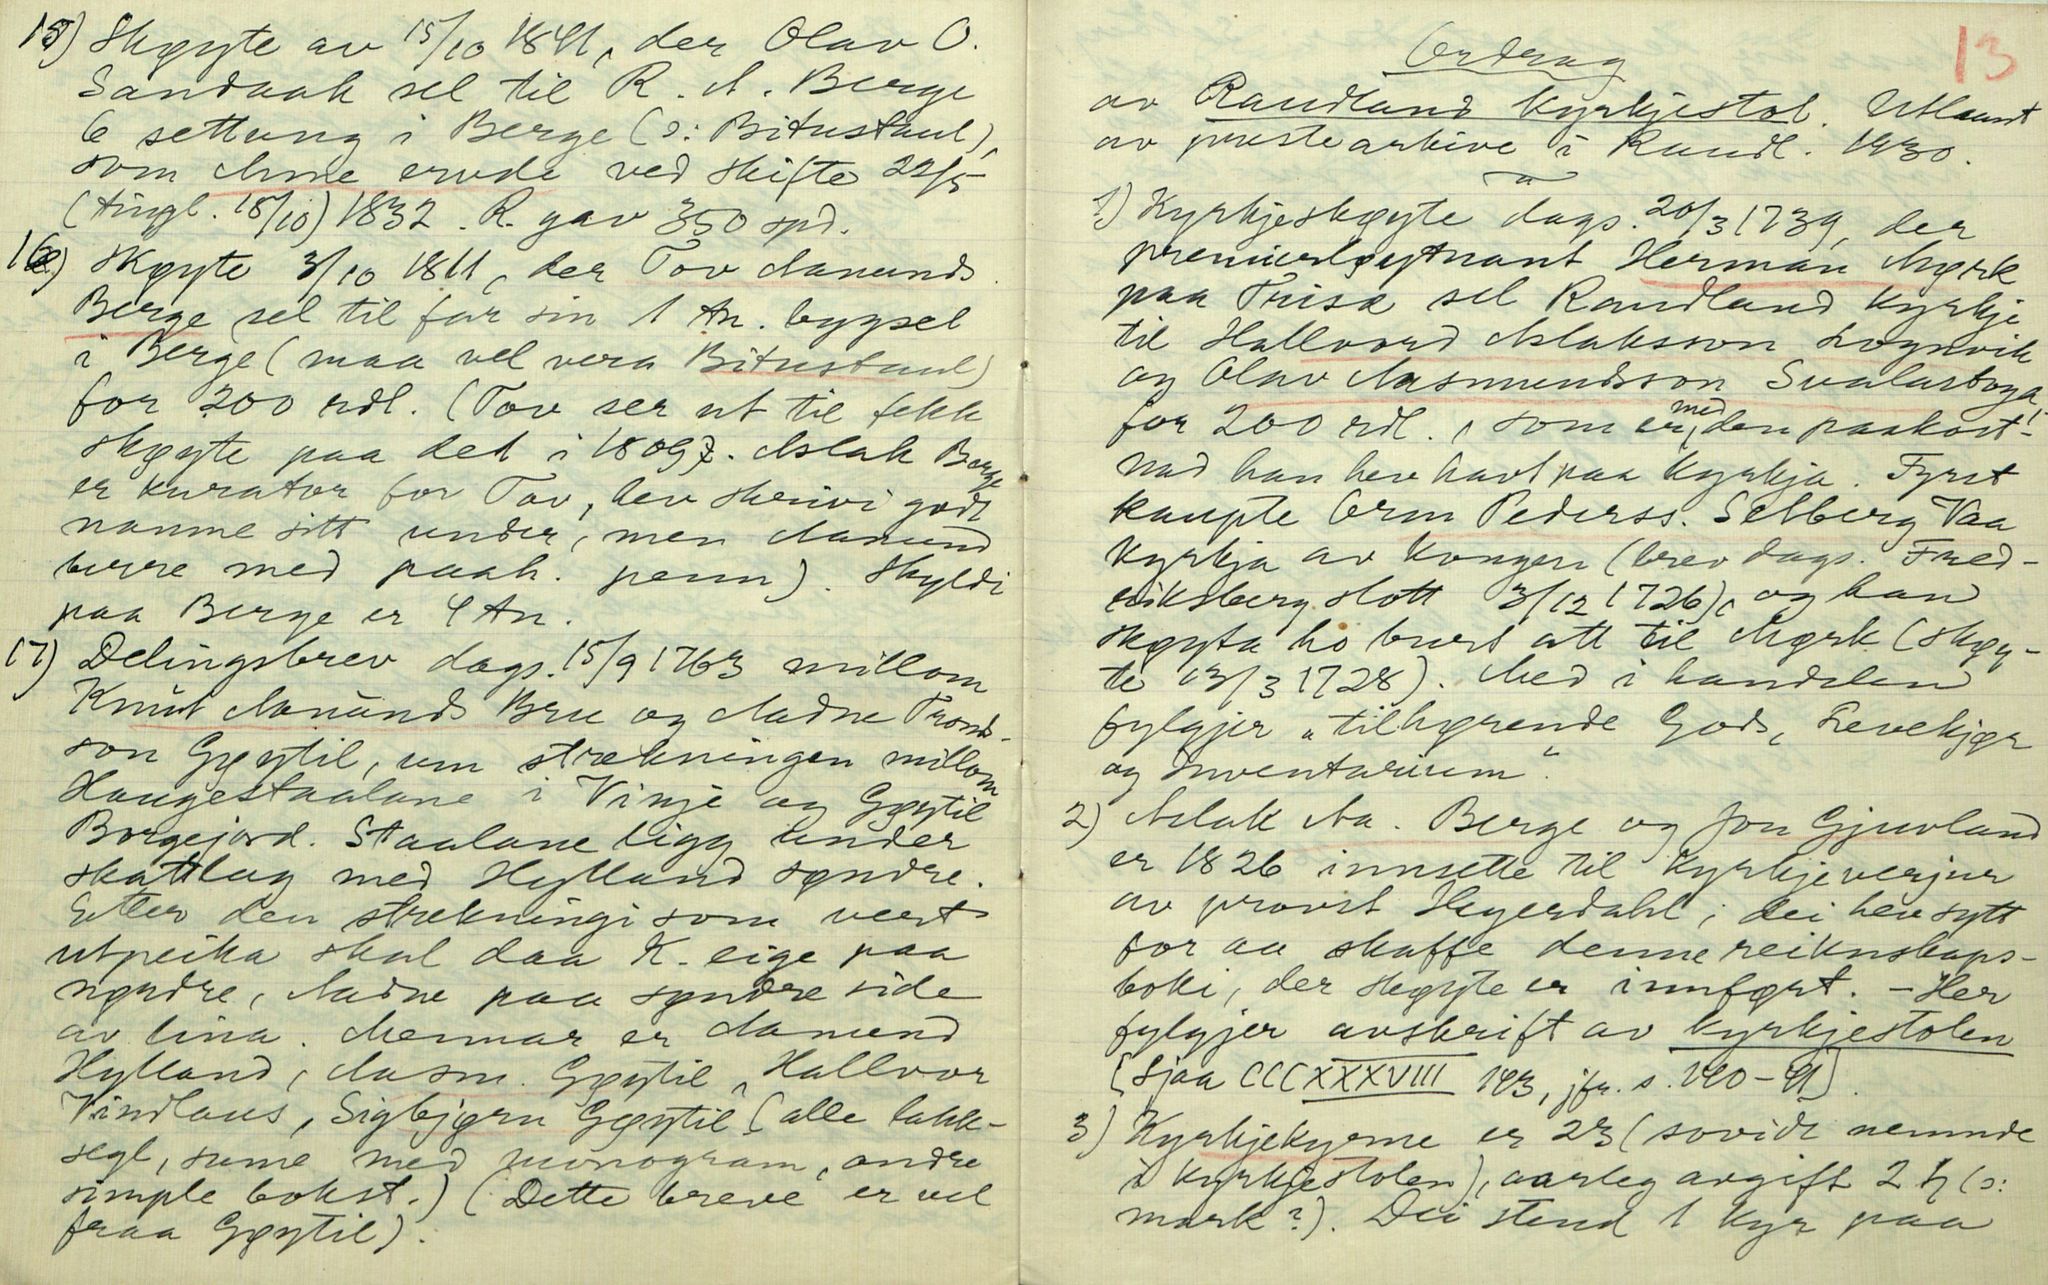 15) Skøyte av 15/10 1841, der Olav O.
Sandaak sel til R. A. Berge
6 settung i Berge (ɔ: Bitustaul),
som Anne ervde ved skifte 22/5
(tingl. 18/10) 1832. R. gav 350 spd.
16) Skøyte 3/10 1811, der Tov Aamunds
Berge sel til far sin 1 tn. bygsel
i Berge (maa vel vera Bitustaul)
for 200 rdl. (Tov ser ut til fekk
skøyte paa det i 1809). Aslak Berge
er kurator for Tov, hev skrivi godt
namne sitt under, men Aamund
berre med paah. penn). Skyldi
paa Berge er 4 tn.
17) Delingsbrev dags. 15/9 1763 millom
Knut Aamunds Bru og Aadne Tronds-
son Gøytil, um strekningen millom
Haugestaalane i Vinje og Gøytil
Borgejord. Staalane ligg under
skattlag med Hylland søndre.
Etter den strekningi som vert
utpeika skal daa K. eige paa
nørdre, Aadne paa søndre side
av lina. Mennar er Aamund
Hylland, Aasm. Gøytil, Hallvor
Vindlaus, Sigbjørn Gøytil (alle lakk-
segl, sume med monogram, andre
simple bokst.) (Dette breve er vel
fraa Gøytil).
13
Ordrag
av Raudland Kyrkjestol. Utlaant
av prestearkive i Raudl. 1930.
1) Kyrkjeskøyte dags. 20/3 1739, der
premierløytnant Herman Mørk
paa Triset sel Raudland kyrkje
til Hallvord Aslaksson Lognvik
og Olav Aasmundsson Svalastoga,
for 200 rdl., som er med den paakost-
nad han hev havt paa kyrkja. Fyrst
kaupte Orm Pederss. Selberg Vaa
kyrkja av kongen (brev dags. Fred-
riksberg slott 3/12 1726), og han
skøyta ho burt att til Mørk (skøy-
te 13/3 1728). Med i handelen
fylgjer "tilhørende Gods, Levekjør
og Inventarium".
2) Aslak Aa. Berge og Jon Gjuvland
er 1826 innsette til kyrkjeverjur
av provst Heyerdahl; dei hev sytt
for aa skaffe denne reiknskaps-
boki, der skøyte er innført. - Her
fylgjer avskrift av kyrkjestolen
[Sjaa CCCXXXVIII 193, jfr. s. 190-91].
3) Kyrkjekyrne er 23 (sovidt nemnde
i kyrkjestolen), aarleg avgift 2 ℔ (ɔ:
mark?). Dei stend 1 kyr paa